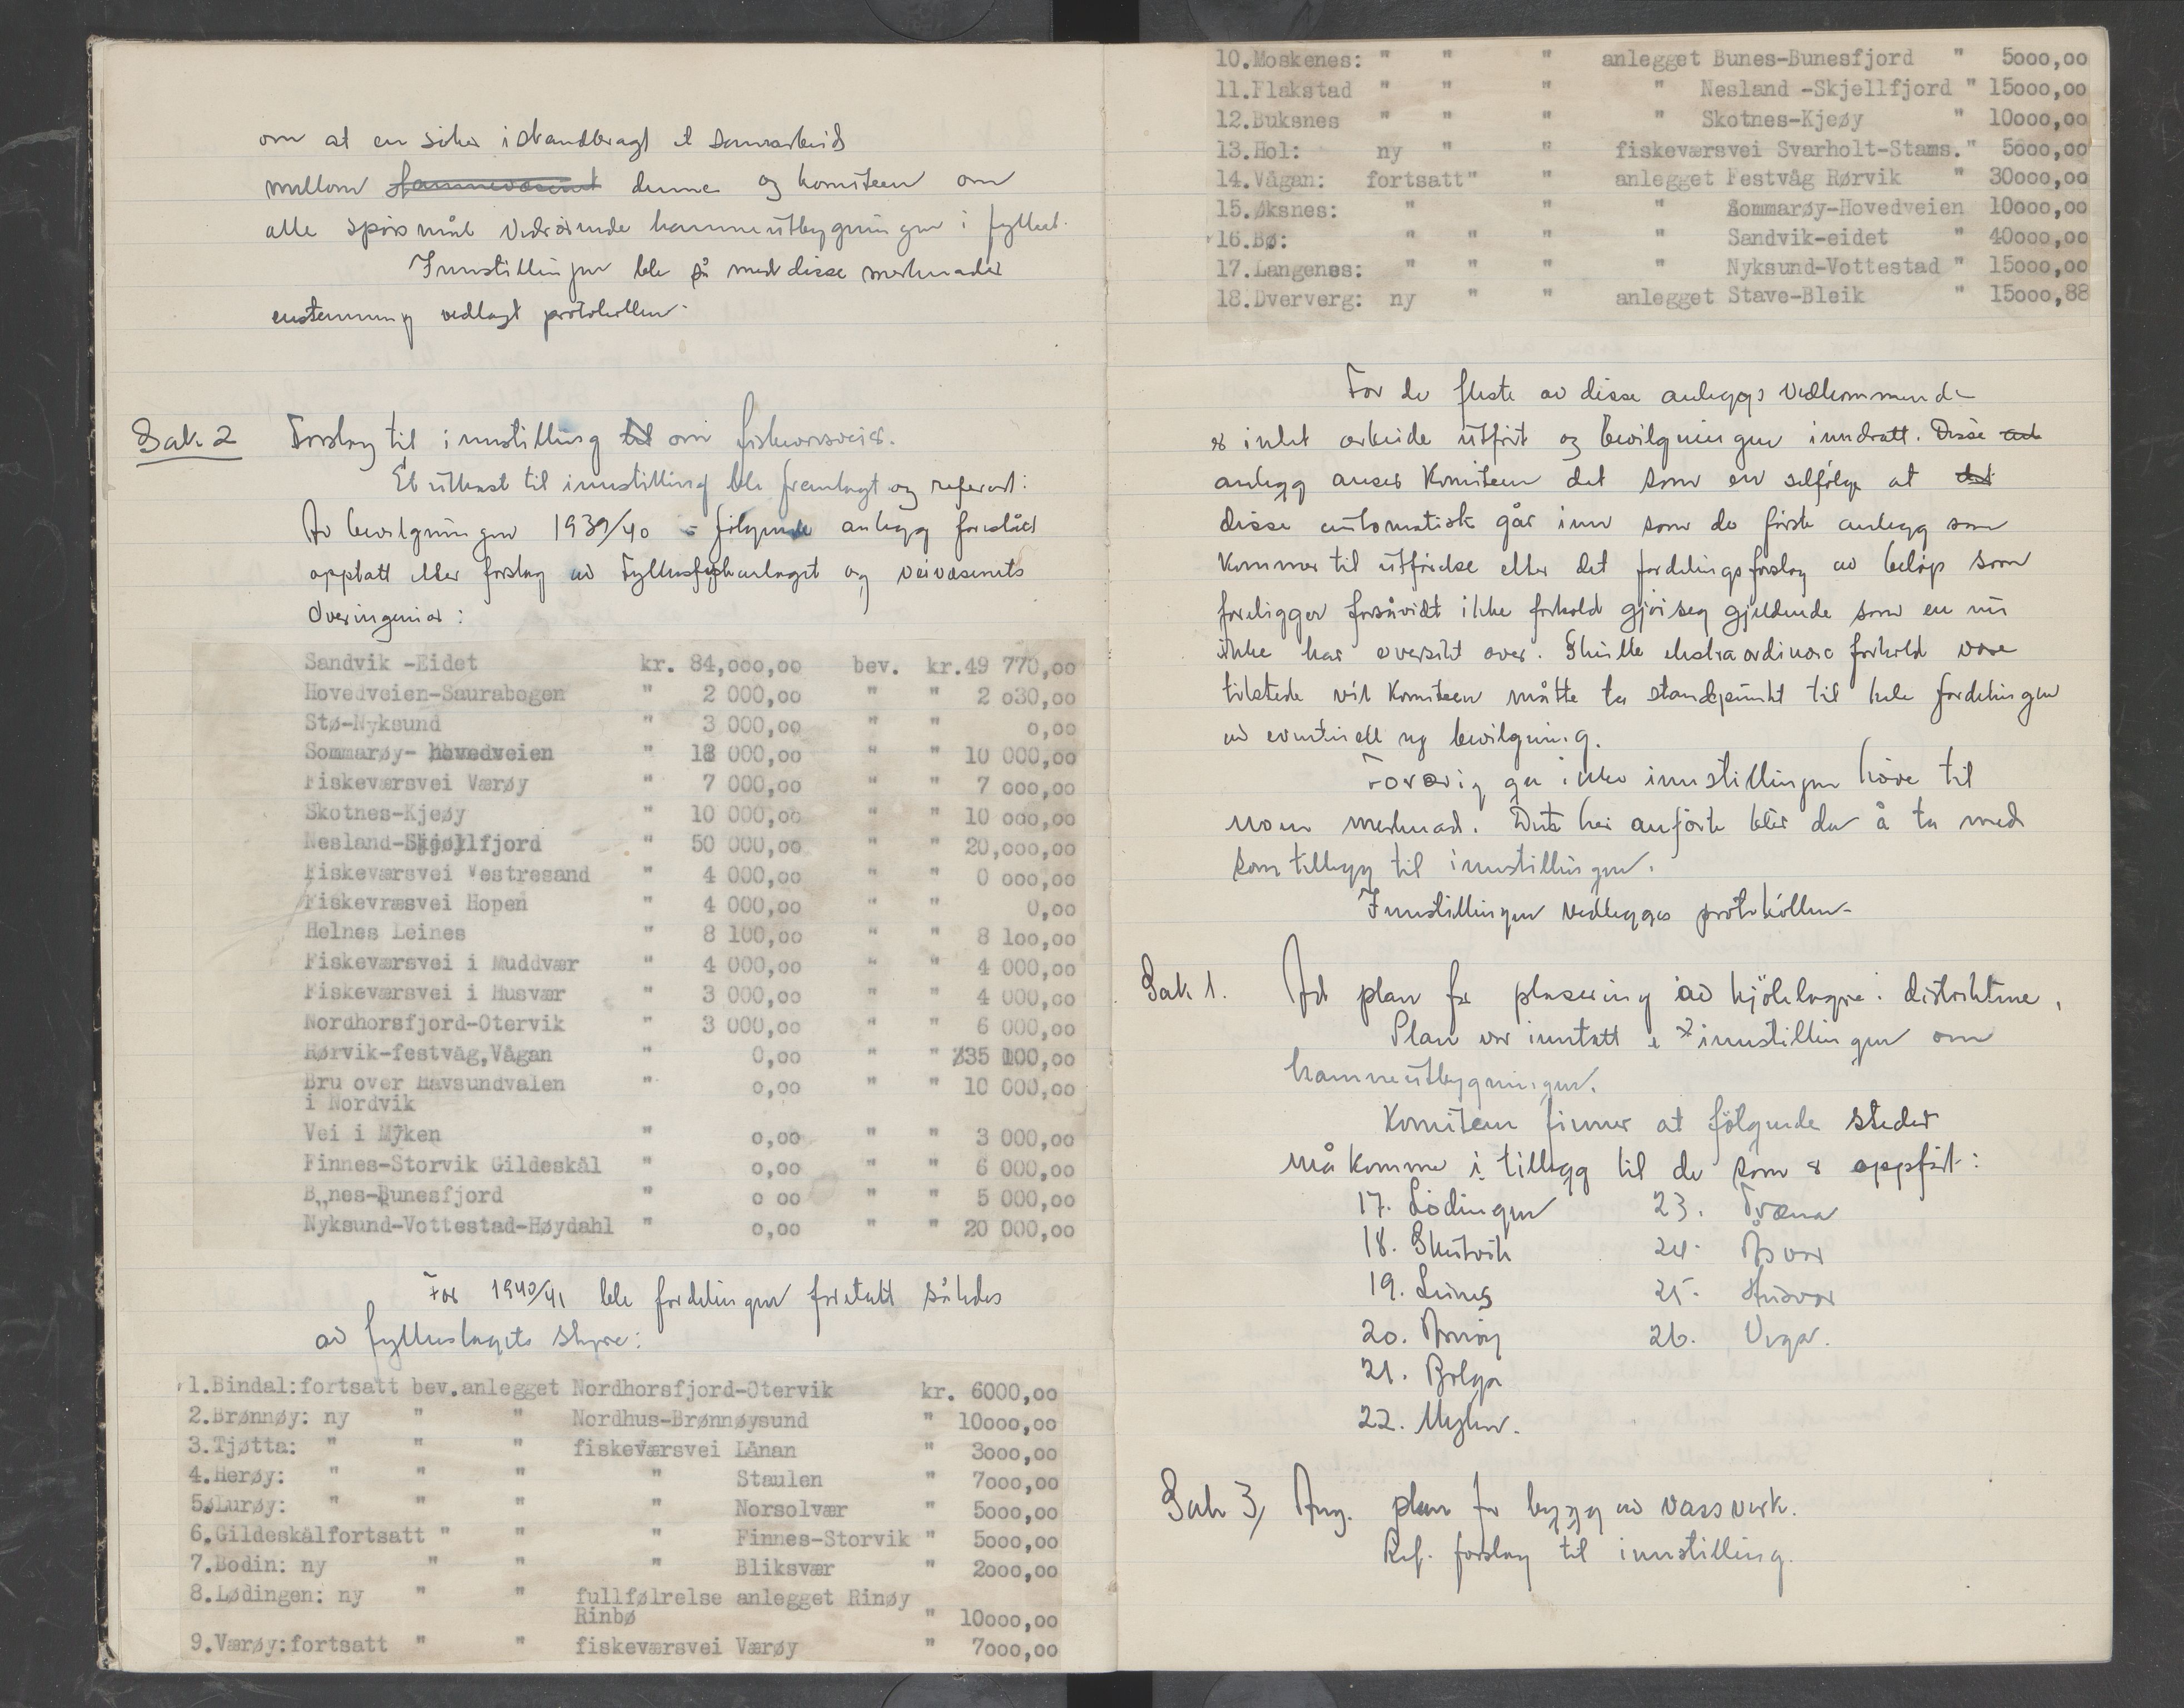 om at en søker istandbragt et samarbeid
mellom havnevesenet denne og komiteen om
alle spørsmål vedrørende havneutbygningen i fylket.
Innstillingen ble så med disse merknader
enstemmig vedlagt protokollen.
Sak 2 Forslag til innstilling til om fiskeværsveier.
Et utkast til innstilling ble fremlagt og referert:
Av bevilgningen 1939/40 er følgende anlegg foreslått
opptatt etter forslag av Fylkesfiskarlaget og veivesenets
overingeniør:
Sandvik -Eidet kr. 84,ooo,oo bev. kr.49 770,oo
Hovedveien-Saurabogen " 2 000,oo " " 2 o30,oo
Stø-Nyksund " 3 000,oo " " o,oo
Sommarøy- hovedveien " 18 000,oo " " 10 000,oo
Fiskeværsvei Værøy " 7 000,oo " " 7 ooo,oo
Skotnes-Kjeøy " 10 000,oo " " 10 ooo,oo
Nesland-Skjellfjord " 50 000,oo " " 20,ooo,oo
Fiskeværsvei Vestresand " 4 000,oo " " 0 ooo,oo
Fiskevræsvei Hopen " 4 000,oo " 0,oo
Helnes Leines " 8 100,oo " " 8 1oo,oo
Fiskeværsvei i Muddvær " 4 000,oo " " 4 000,oo
Fiskeværsvei i Husvær " 3 000,oo " " 4 000,oo
Nordhorsfjord-Otervik " 3 000,oo " " 6 000,oo
Rørvik-festvåg,Vågan " 0,oo " " 335 100,oo
Bru over Havsundvalen " o,oo " " 10 000,oo
i Nordvik
Vei i Myken " o,oo " " 3 000,oo
Finnes-Storvik Gildeskål " o,oo " " 6 000,oo
B,,nes-Bunesfjord " o oo " " 5 000,oo
Nyksund-Vottestad-Høydahl " o,oo " " 20 000,oo
For 1940/41 ble fordelingen foretatt således
av fylkeslagets styre:
1.Bindal:fortsatt bev.anlegget Nordhorsfjord-Otervik kr. 6000,oo
2.Brønnøy: ny " " Nordhus-Brønnøysund " 10ooo,oo
3.Tjøtta: " " " fiskeværsvei Lånan " 3ooo,oo
4.Herøy: " " " " Staulen " 7ooo,oo
5.Lurøy: " " " " Norsolvær " 5ooo,oo
6.Gildeskålfortsatt " " " Finnes-Storvik " 5ooo,oo
7.Bodin: ny " " " Bliksvær " 2ooo,oo
8.Lødingen: ny " " fullfølrelse anlegget Rinøy
Rinbø " 10ooo,oo
9.Værøy:fortsatt " " fiskeværsvei Værøy " 7ooo,oo
10.Moskenes: " " " anlegget Bunes-Bunesfjord " 5ooo,oo
11.Flakstad " " " " Nesland -Skjellfjord " 15ooo,oo
12.Buksnes " " " " Skotnes-Kjeøy " 10ooo,oo
13.Hol: ny " " fiskeværsvei Svarholt-Stams." 5ooo,oo
14.Vågan: fortsatt" " anlegget Festvåg Rørvik " 30ooo,oo
15.Øksnes: " " " Sommarøy-Hovedveien 10ooo,oo
16.Bø: " " " " Sandvik-eidet " 40ooo,oo
17.Langenes: " " " " Nyksund-Vottestad " 15ooo,oo
18.Dververg: ny " " anlegget Stave-Bleik " 15ooo,88
For de fleste av disse anleggs vedkommende
er intet arbeide utført og bevilgningen inndratt. Disse
anlegg anser komiteen det som en selfølge at det
disse automatisk går inn som de første anlegg som
kommer til utførelse etter det fordelingsforslag av beløp som
foreligger forsåvidt ikke forhold gjør seg gjeldende som en nu
ikke har oversikt over. Skulle ekstraordinære forhold være
tilstede vil komiteen måtte ta standpunkt til hele fordelingen
av eventuell ny bevilgning.
Forøvrig ga ikke innstillingen høve til
noen merknad. Det her anførte blir da å ta med
som tillegg til innstillingen.
Innstillingen vedlegges protokollen.
Sak 1. Ad plan for plasering av kjølelagre i distriktene.
Plan var inntatt i innstillingen om
havneutbygningen.
Komiteen finner at følgende steder
må komme i tillegg til de som er oppført:
17. Lødingen 23. Træna
18. Skutvik 24. Åsvær
19. Leines 25. Husvær
20. Arnøy 26. Vega.
21. Bolga
22. Myken.
Sak 3, Ang. plan for bygg av vassverk.
Ref. forslag til innstilling.